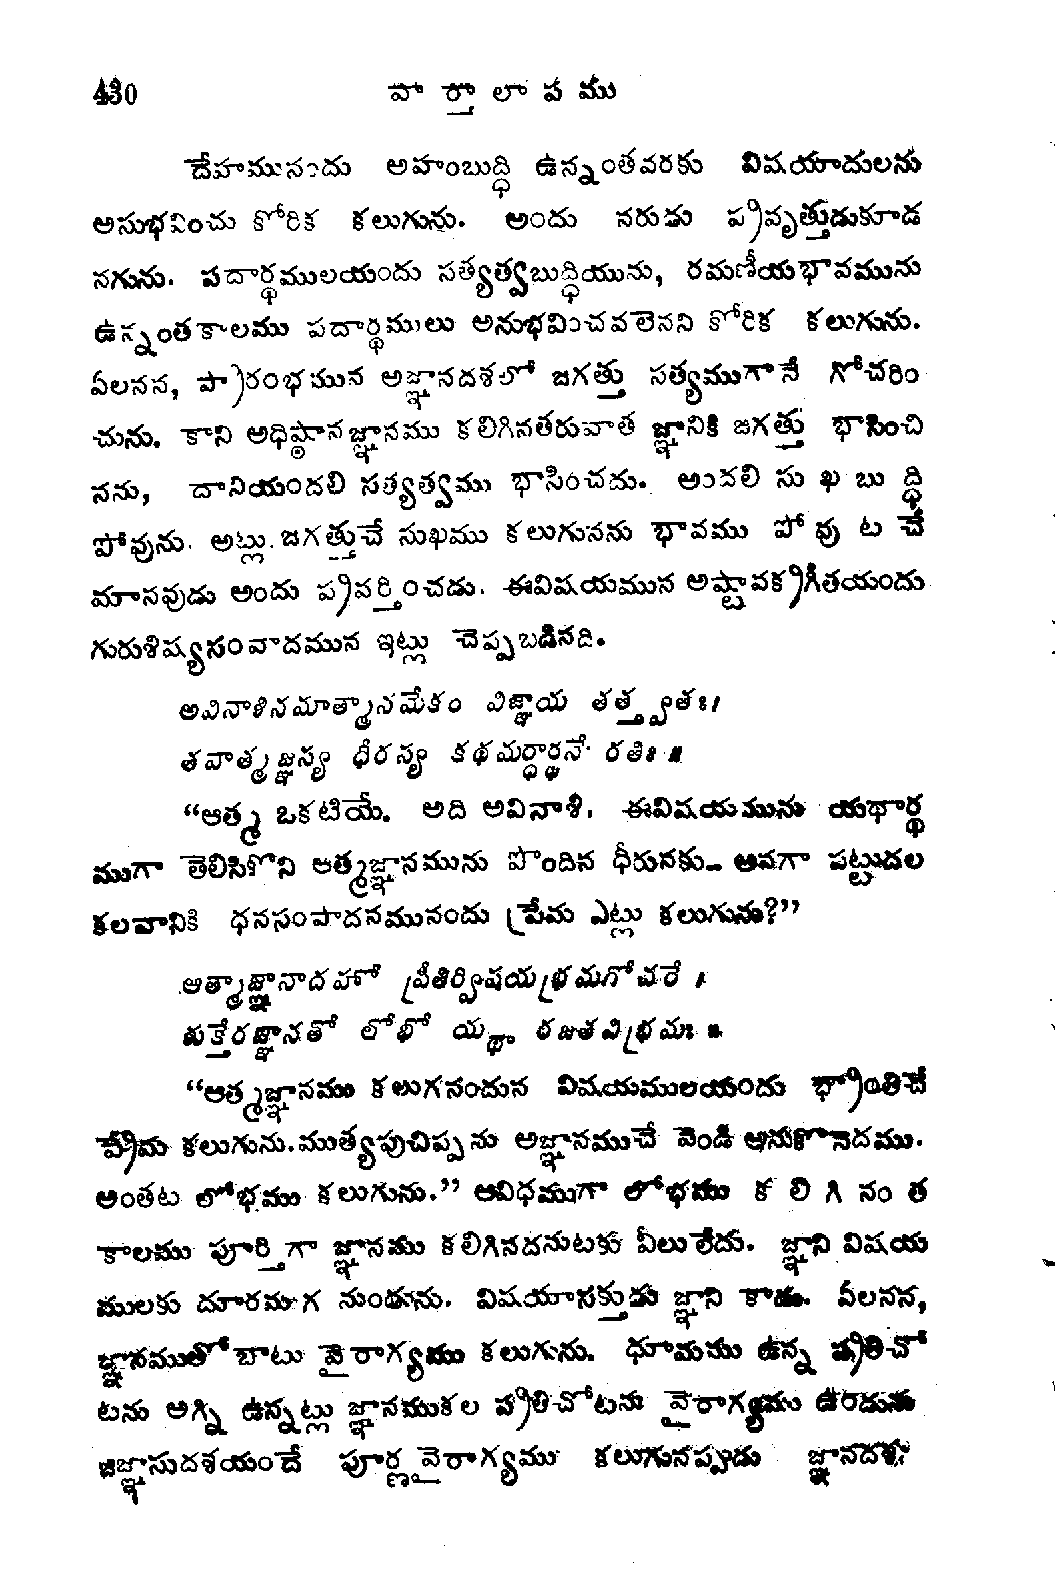 430 వార్తాలాపము
దేహమునందు అహంబుద్ధి ఉన్నంతవరకు విషయాదులను
అనుభవించు కోరిక కలుగును. అందు నరుడు ప్రవృత్తుడుకూడ
నగును. పదార్థములయందు సత్యత్వబుద్ధియును, రమణీయభావమును
ఉన్నంతకాలము పదార్థములు అనుభవించవలెనని కోరిక కలుగును.
ఏలనన, ప్రారంభమున అజ్ఞానదశలో జగత్తు సత్యముగానే గోచరిం
చును. కాని అధిష్ఠానజ్ఞానము కలిగినతరువాత జ్ఞానికి జగత్తు భాసించి
నను, దానియందలి సత్యత్వము భాసించదు. అందలి సుఖబుద్ధి
పోవును. అట్లు జగత్తుచే సుఖము కలుగునను భావము పోవుటచే
మానవుడు అందు ప్రవర్తించడు. ఈవిషయమున అష్టావక్రగీతయందు
గురుశిష్యసంవాదమున ఇట్లు చెప్పబడినది.
అవినాశినమాత్మానమేకం విజ్ఞాయ తత్త్వతః।
తవాత్మజ్ఞస్య ధీరస్య కథమర్థార్జనే రతిః॥
“ఆత్మ ఒకటియే. అది అవినాశి. ఈవిషయమును యథార్థ
ముగా తెలిసికొని ఆత్మజ్ఞానమును పొందిన ధీరునకు- అనగా పట్టుదల
కలవానికి ధనసంపాదనమునందు ప్రేమ ఎట్లు కలుగును?”
ఆత్మాజ్ఞానాదహో ప్రీతిర్విషయభ్రమగోచరే।
శుక్తేరజ్ఞానతో లోభో యథా రజతవిభ్రమః॥
“ఆత్మజ్ఞానము కలుగనందున విషయములయందు భ్రాంతిచే
ప్రేమ కలుగును. ముత్యపుచిప్పను అజ్ఞానముచే వెండి అనుకొనెదము.
అంతట లోభము కలుగును.” ఆవిధముగా లోభము కలిగినంత
కాలము పూర్తిగా జ్ఞానము కలిగినదనుటకు వీలులేదు. జ్ఞాని విషయ
ములకు దూరముగ నుండును. విషయాసక్తుడు జ్ఞాని కాడు. ఏలనన,
జ్ఞానముతోబాటు వైరాగ్యము కలుగును. ధూమము ఉన్న ప్రతిచో
టను అగ్ని ఉన్నట్లు జ్ఞానముకల ప్రతిచోటను వైరాగ్యము ఉండును
జిజ్ఞాసుదశయందే పూర్ణవైరాగ్యము కలుగునప్పుడు జ్ఞానదశ